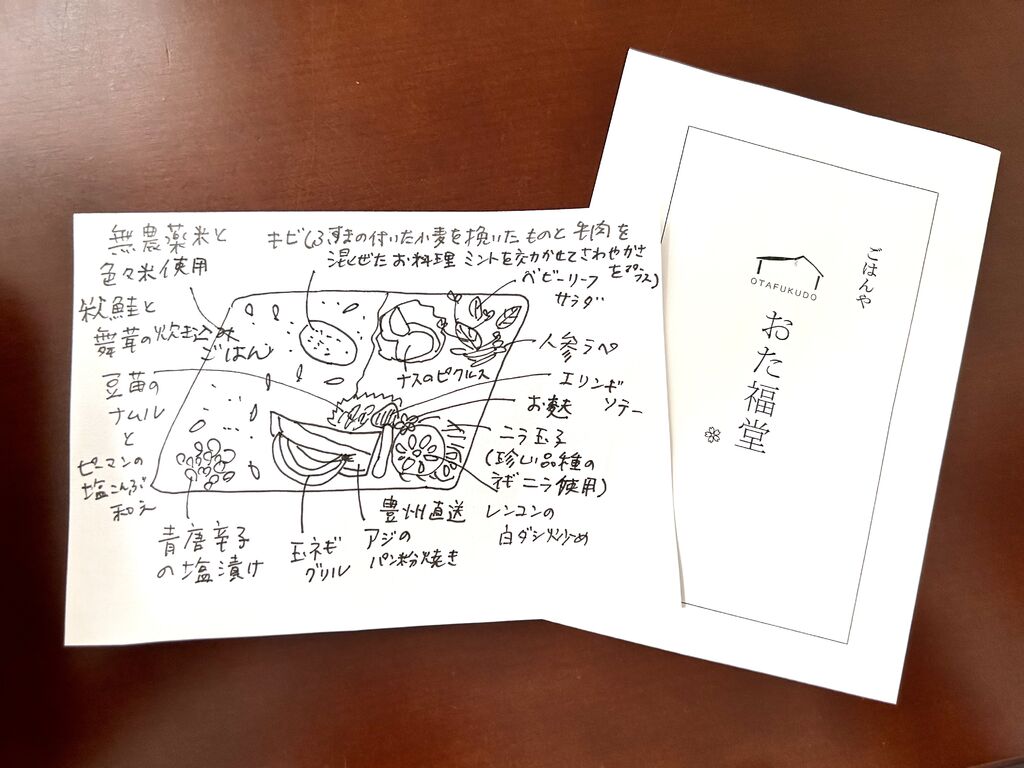 無農薬米と
色々米使用
秋鮭と
舞茸の炊き込み
ごはん
豆苗の
ナムル
と
ピーマンの
塩こんぶ
和え
青唐辛子
の塩漬け
キビ(ふすまの付いた小麦を挽いたものと牛肉を
混ぜたお料理 ミントを効かせてさわやかさ
をプラス)
ベビーリーフ
サラダ
人参ラペ
ナスのピクルス
エリンギ
ソテー
お麩
ニラ玉子
(珍しい品種の
ネギニラ使用)
レンコンの
白ダシ炒め
豊州直送
アジの
パン粉焼き
玉ネギ
グリル
ごはんや
OTAFUKUDO
おた福堂